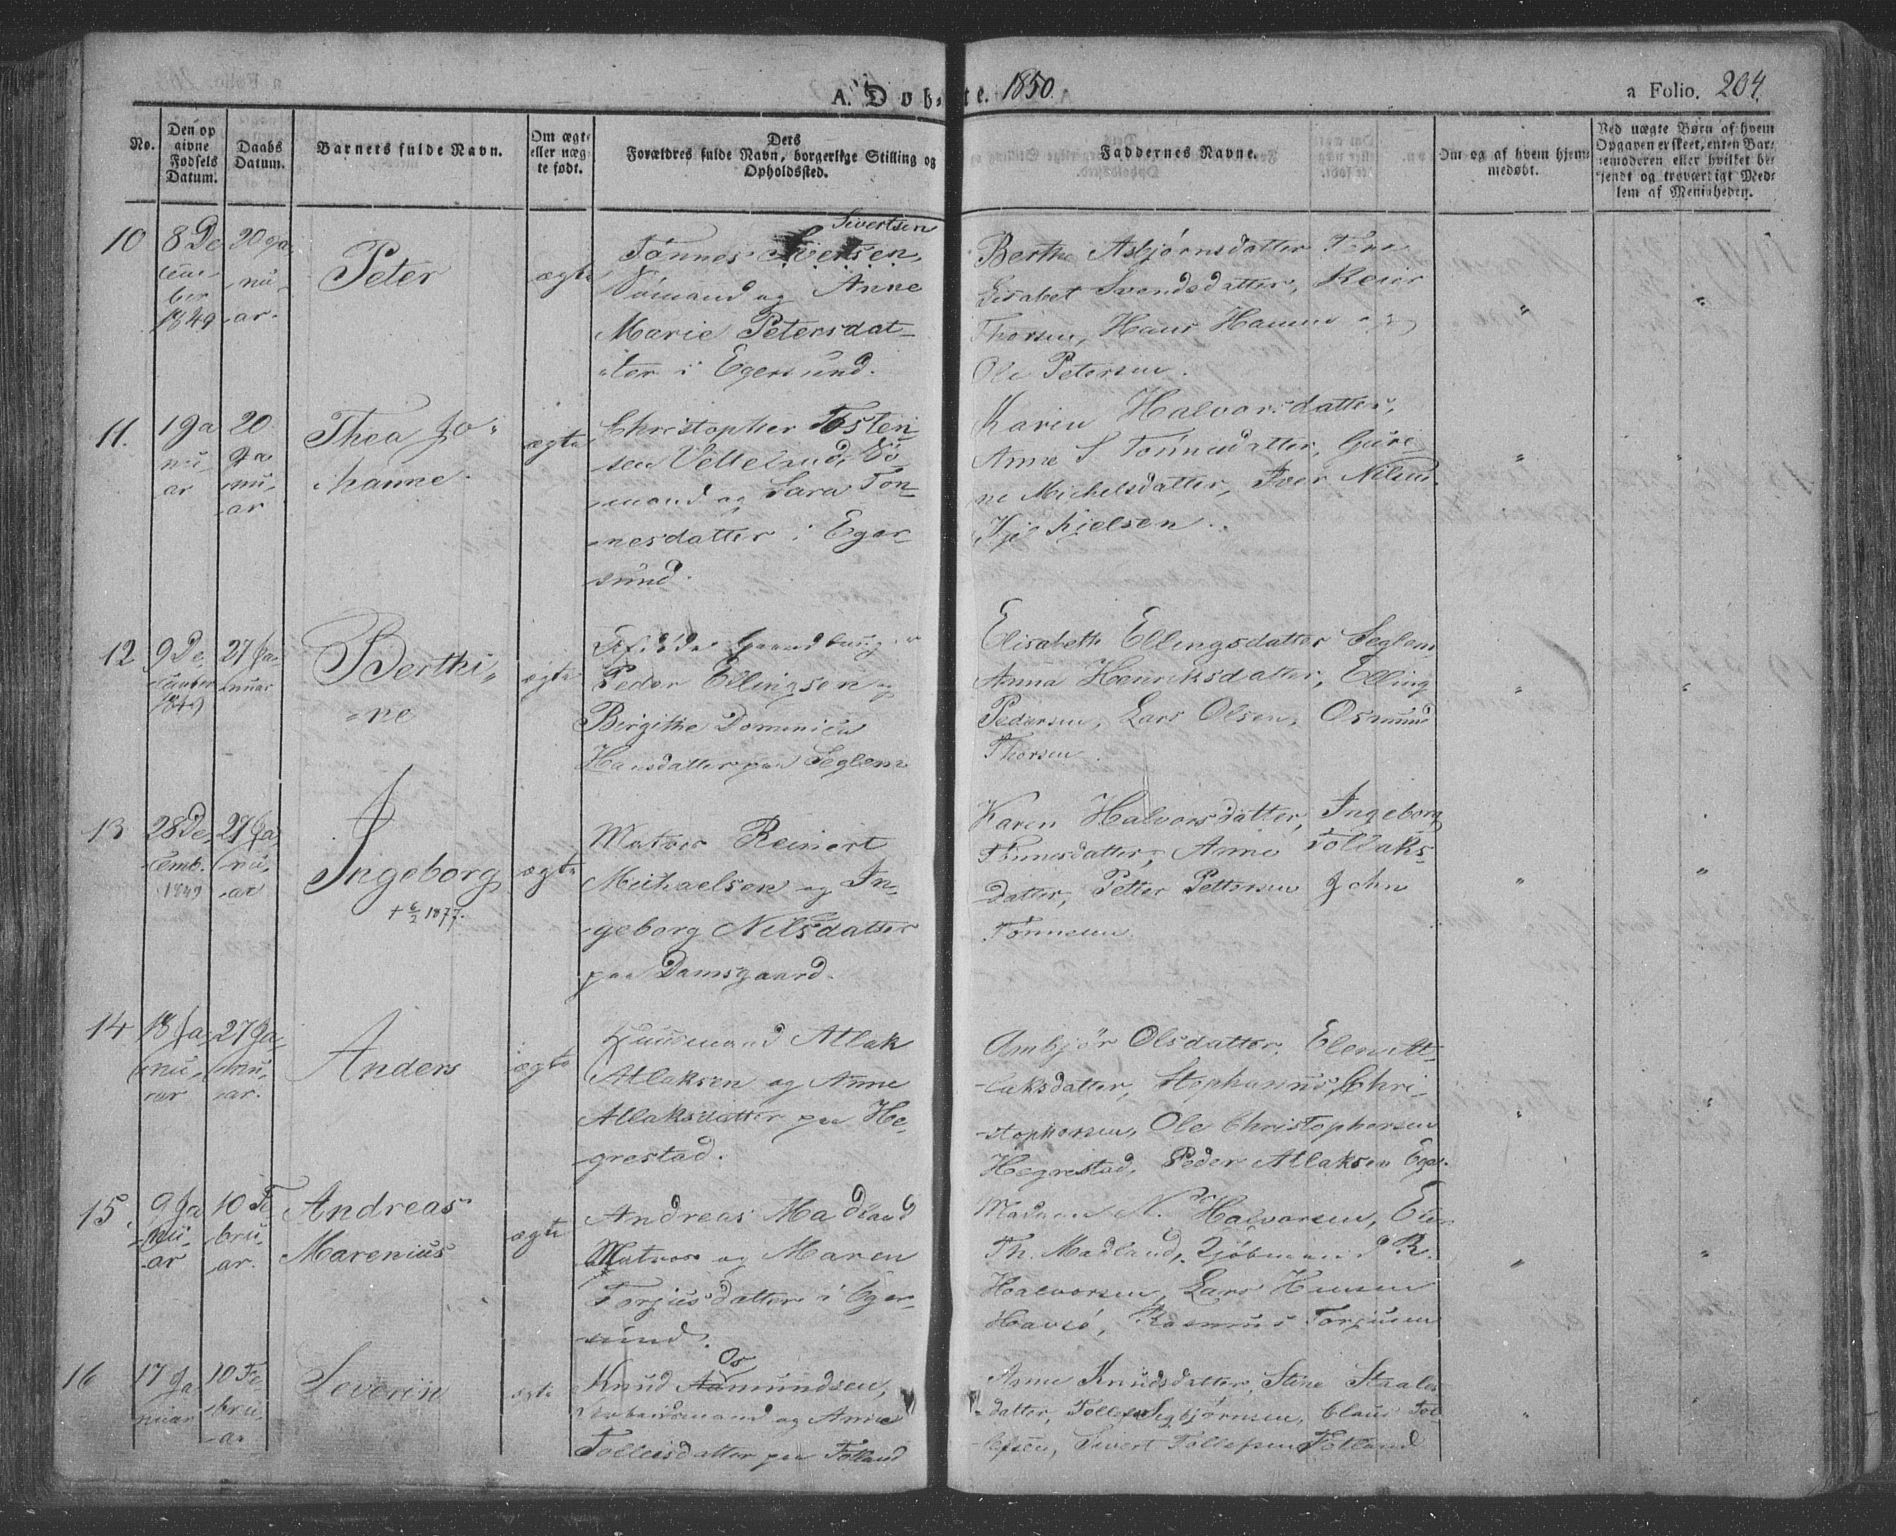 A. Døbte. 1850.
a Folio. 204.
No.
Den op
givne
Fødsels
Datum.
Daabs
Datum.
Barnets fulde Navn.
Om ægte
eller uæg
te født.
Ders
Forældres fulde Navn, borgerlige Stilling og
Opholdssted.
Faddernes Navne.
Om og af hvem hjem
medøbt.
Ved uægte Børn af hvem
Opgaven er skeet, enten Bar
nemoderen eller hvilket be
kjendt og troværdigt Med
lem af Menigheden.
10
8 De
cem
ber
1849
20 Ja
nu
ar.
Peter
ægte
Sivertsen
Tønnes
Sømand og Anne
Marie Petersdat
ter i Egersund.
Berthe Asbjørnsdatter
Lisabet Svendsdatter, Reier
Thorsen, Hans
Ole Petersen.
11.
1 Ja
nu
ar
20
Ja
nu
ar
Thea Jo
hanne.
ægte
Christopher Tosten
sen Vetteland, Sø
mand og Sara Ton
nesdatter i Eger
sund.
Karen Halvorsdatter,
Anne S Tønnesdatter, Guri
ne Michelsdatter, Iver
Kjelsen.
12
9 De
cember
1849
27 Ja
nuar
Berthi
ne
ægte
Peder Ellingsen og
Birgithe Dominica
Hansdatter paa Seglem
Elisabeth Ellingsdatter Seglem
Anna Henriksdatter, Elling
Pedersen, Lars Olsen, Osmund
Thorsen
13
28 De
cemb.
1849
27 Ja
nu
ar
Ingeborg
+ 6/2 1877.
ægte
Matros Reinert
Michaelsen og In
geborg Nilsdatter
paa Damsgaard.
Karen Halvorsdatter, Ingeborg
Tønnesdatter, Anne Tollaks
datter, Petter Pettersen John
Tønnesen
14
18 Ja
nu
ar
27 Ja
nu
ar.
Anders
ægte
Huusmand Atlak
Atlaksen og Anne
Atlaksdatter paa He
grestad.
Ambjør Olsdatter, Elen At
laksdatter, Stephanus Chri
stophersen, Ole Christophersen
Hegrestad, Peder Atlaksen Eger
15.
9 Ja
nu
ar
10 Fe
bru
ar.
Andreas
Marenius
ægte
Andreas Madland
Matros og Maren
Torjusdatter i Eger
sund.
Madam N. Halvorsen,
Th. Madland, Kjøbmand R.
Halvorsen, Lars Hansen
Havsø, Rasmus Torjusen
16
17 Ja
nuar
10 Fe
bru
ar
Severin
ægte
Os
Knud Aamundsen,
Arbeidsmand og Anne
Tolleisdatter paa Fotland
Anne Knudsdatter, Stine Staale
datter, Tollef Segbjørnsen, Claus Tol
lefsen, Sivert Tollefsen Fotland